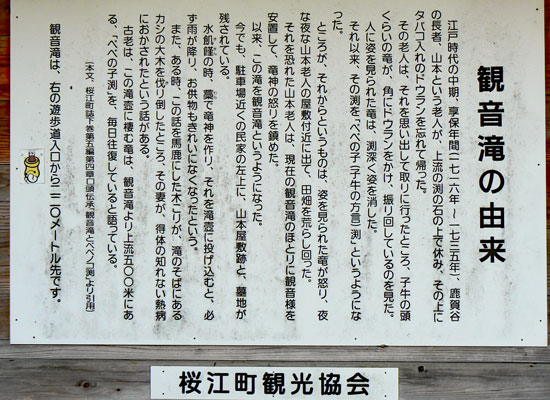 観音滝の由来
江戸時代の中期、享保年間(一七一六年~一七三五年)、鹿賀谷
の長者、山本という老人が、上流の渕の石の上で休み、その上に
タバコ入れのドウランを忘れて帰った。
その老人は、それを思い出して取りに行ったところ、子牛の頭
くらいの竜が、角にドウランをかけ、振り回しているのを見た。
人に姿を見られた竜は、渕深く姿を消した。
それ以来、その渕を、「べべの子(子牛の方言)渕」というようにな
った。
ところが、それからというものは、姿を見られた竜が怒り、夜
な夜な山本老人の屋敷付近に出て、田畑を荒らし回った。
それを恐れた山本老人は、現在の観音滝のほとりに観音様を
安置して、竜神の怒りを鎮めた。
以来、この滝を観音滝というようになった。
今でも、駐車場近くの民家の左上に、山本屋敷跡と、墓地が
残されている。
水飢饉の時、藁で竜神を作り、それを滝壺に投げ込むと、必
ず雨が降り、お供物もきれいになくなったという。
また、ある時、この話を馬鹿にした木こりが、滝のそばにある
カシの大木を伐り倒したところ、その妻が、得体の知れない熱病
におかされたという話がある。
古老は、この滝壺に棲む竜は、観音滝より上流五〇〇米にあ
る、「べべの子渕」を、毎日往復していると語っている。
(本文、桜江町誌下巻第五編第四章口頭伝承、「観音滝とベベノコ渕」より引用)
観音滝は、右の遊歩道入口から一二〇メートル先です。
桜江町観光協会